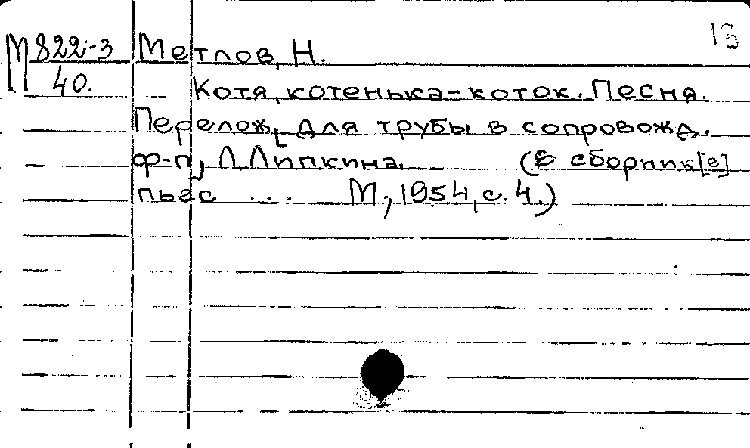 13
М 822-3 Метлов, Н.
40. Котя, котенька-коток. Песня.
Перелож. для трубы в сопровожд.
ф-п, Л. Липкина. (В сборник[е]
пьес ... М., 1954, с. 4.)